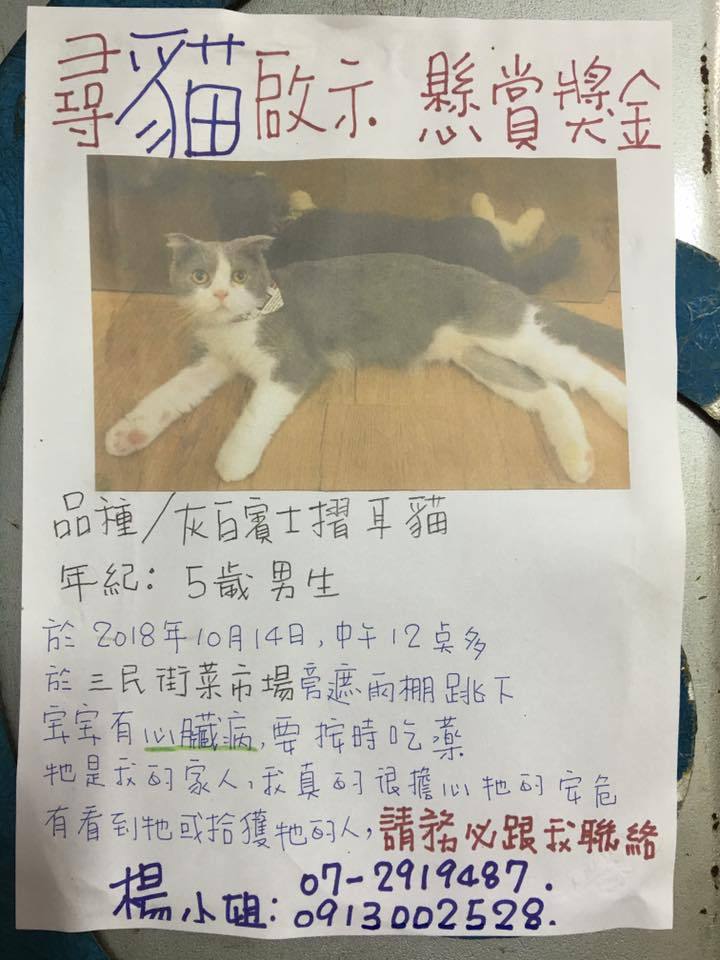 尋貓啟示 懸賞獎金
品種/灰白賓士摺耳貓
年紀: 5歲男生
於 2018年10月14日,中午12点多
於三民街菜市場旁遮雨棚跳下
宝宝有心臟病,要按時吃藥
牠是我的家人,我真的很擔心牠的安危
有看到牠或拾獲牠的人,請務必跟我聯絡
楊小姐: 07-2919487.
0913002528.